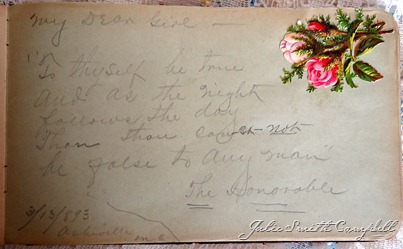 My Dear Girl —
"To thyself be true
And as the night
follows the day
Thou thou canst not
be false to any man"
The Honorable
3/13/893
Julie Smith Campbell